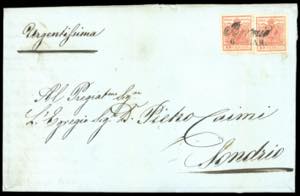 Urgentissima
Al Pregiat.mo Sigr.
L'Egregio Sig. D. Pietro Caimi
Sondrio